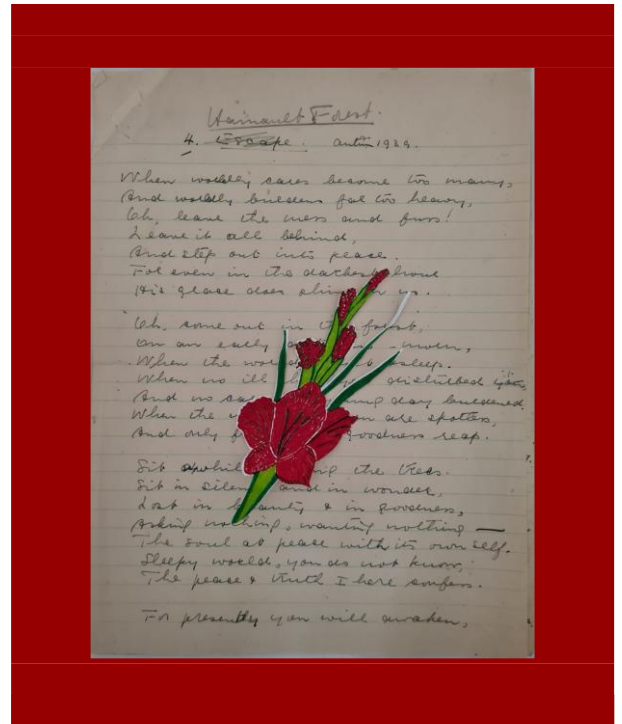 Hainault Forest.
4. Escape. Autm 1989.
When worldly cares become too many,
And worldly burdens feel too heavy,
Oh, leave the mess and fuss!
Leave it all behind,
And step out into peace.
For even in the darkest hour
His grace does shine in us.
Oh, come out in the forest,
On an early morn,
When the asleep.
When no ill disturbed
And no day burdened.
When the are spotless,
And only goodness reap.
Sit awhile the trees.
Sit in silence and in wonder,
Lost in beauty & in goodness,
Asking nothing, wanting nothing —
The soul at peace with its own self.
Sleepy world, you do not know,
The peace & truth I here confess.
For presently you will awaken,